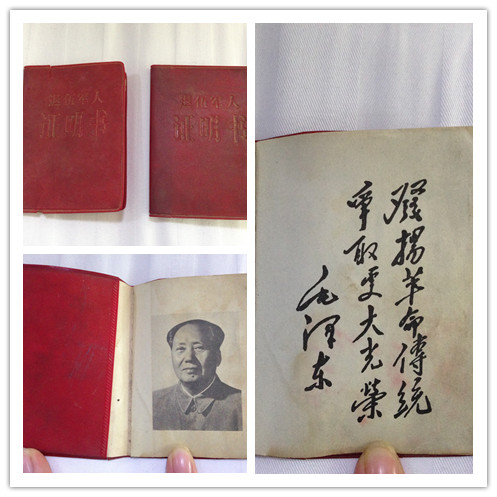 退伍军人
证明书
退伍军人
证明书
發揚革命傳統
爭取更大光榮
毛泽东